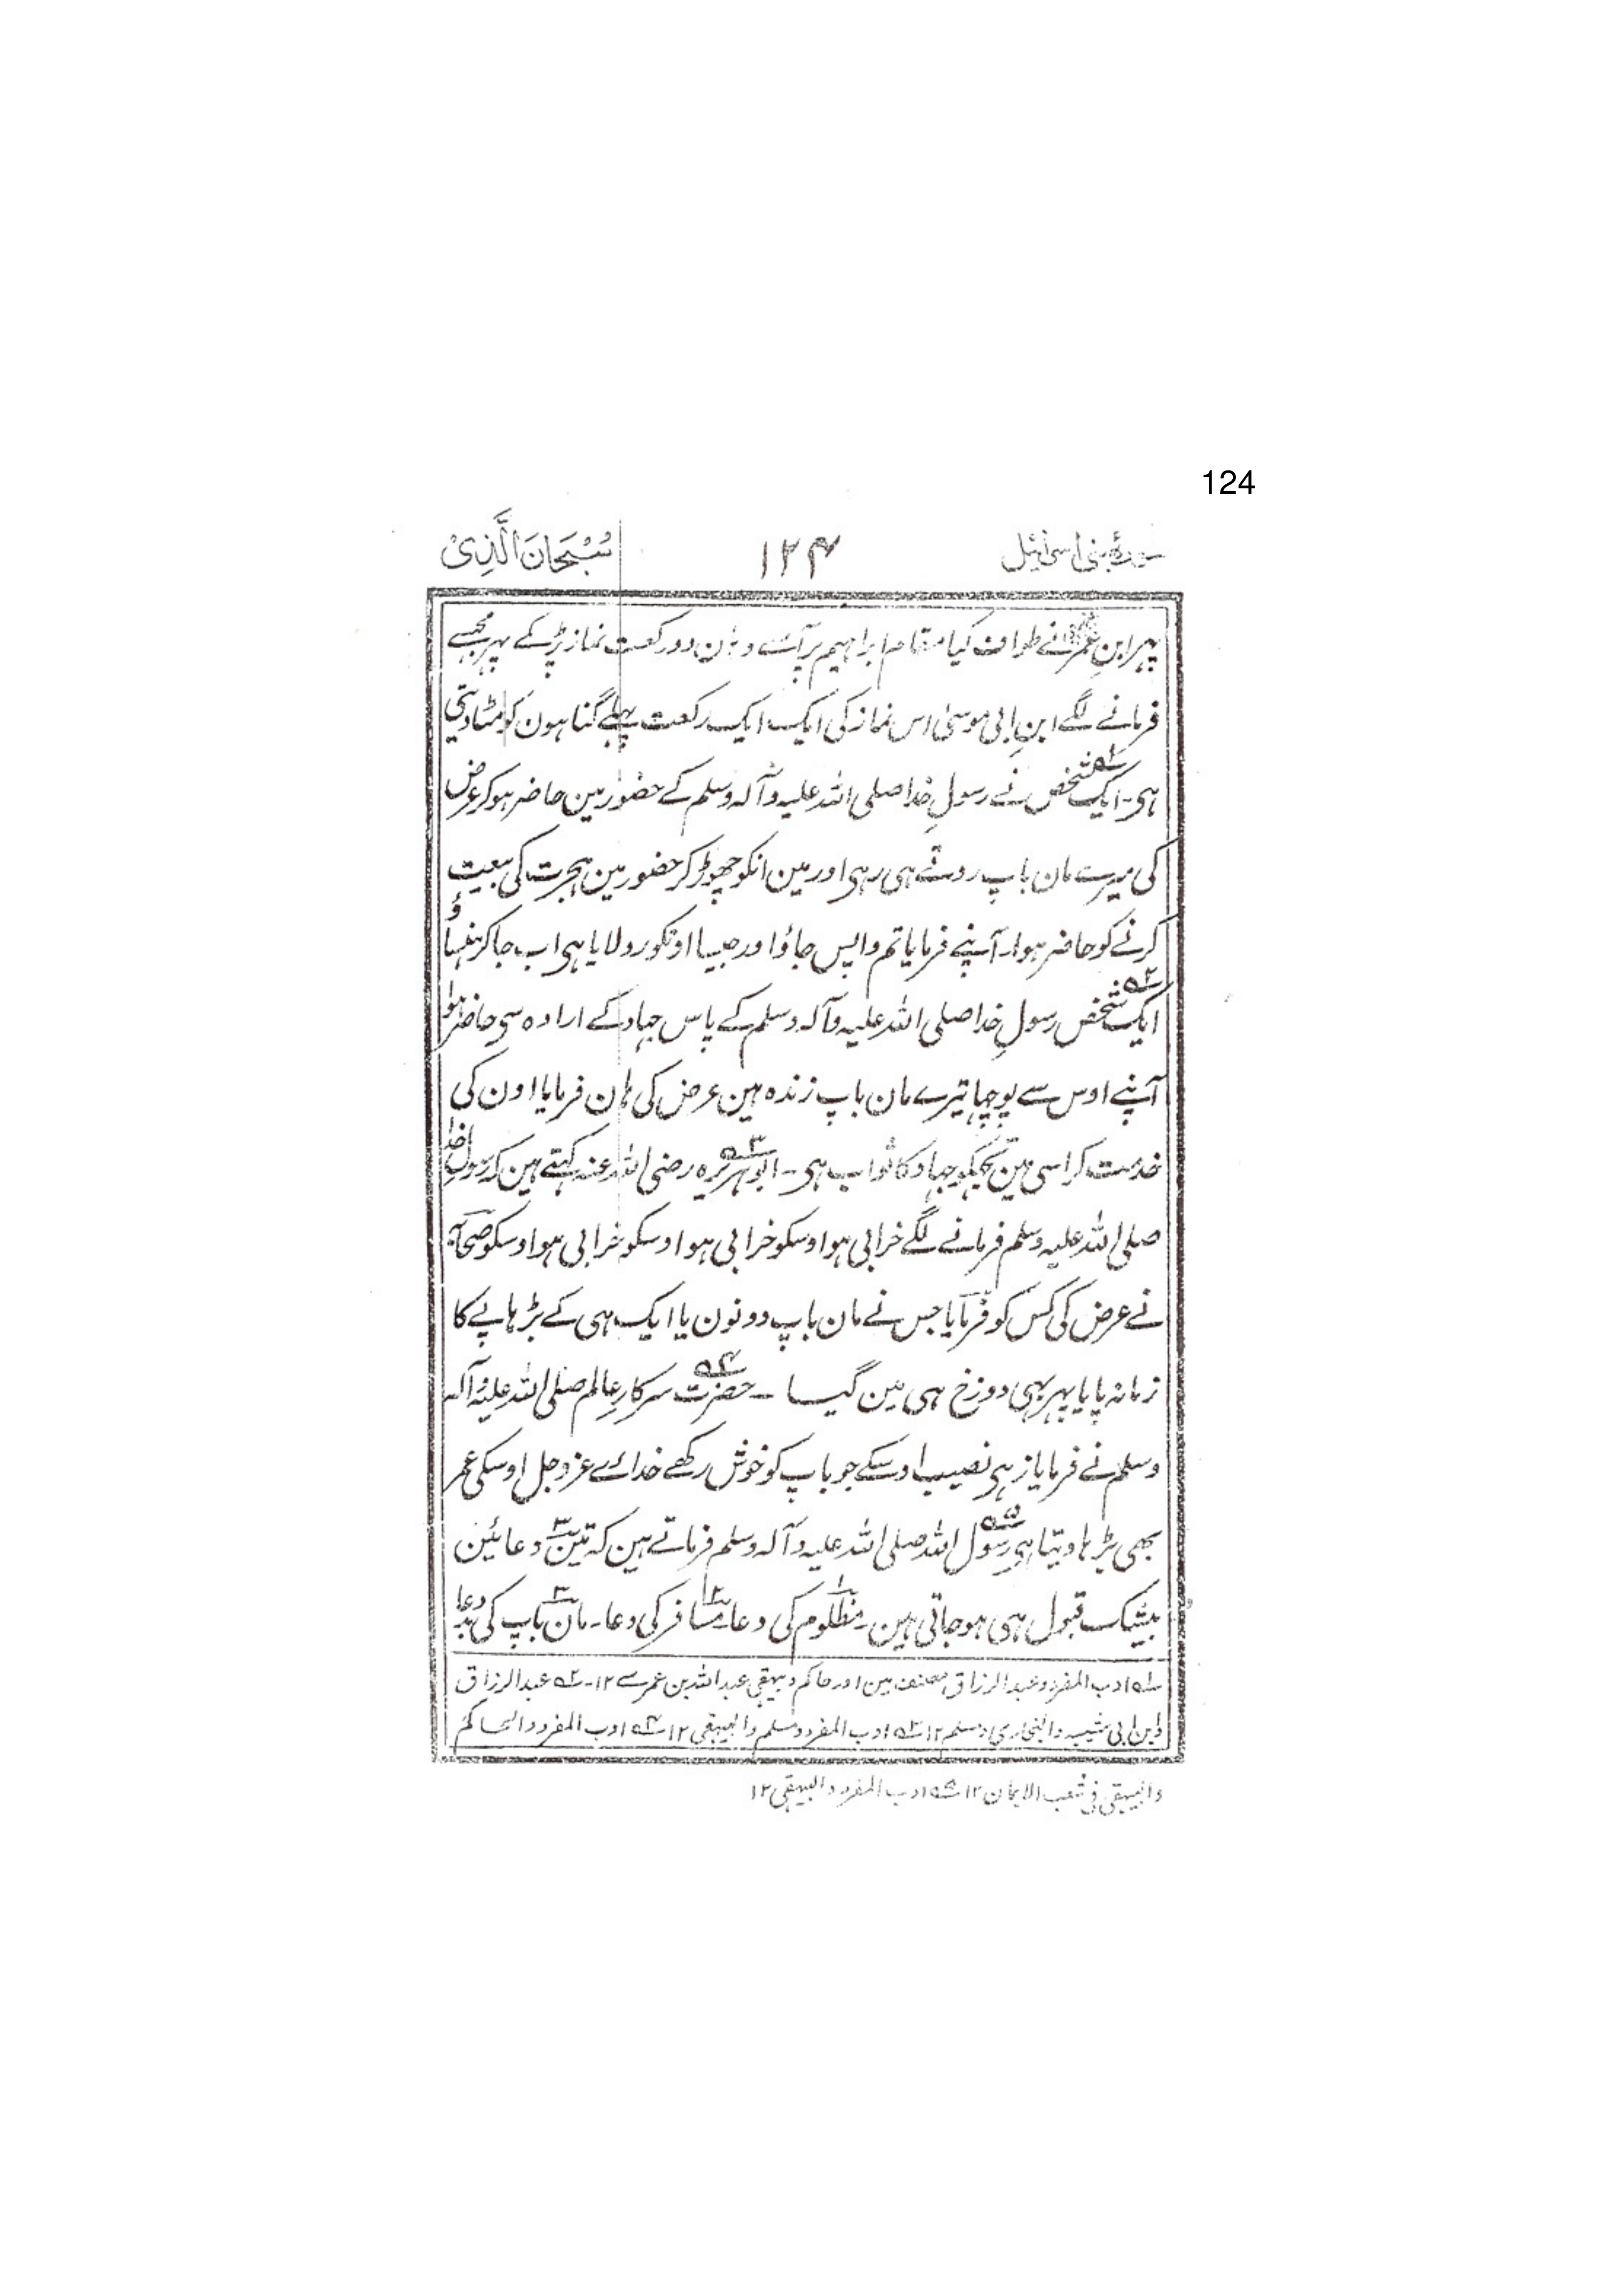 124
سورۂ بنی اسرائیل ۱۲۴ سُبْحَانَ الَّذِیْ
پہر ابنِ عمرؓ نے طواف کیا مقام ابراہیم پر آئے وہان دو رکعت نماز پڑہکے پہر مجھسے
فرمانے لگے ابنِ ابی موسیٰ اس نماز کی ایک ایک رکعت پہلے گناہون کو مٹا دیتی
ہی۔ ایک ۱؎ شخص نے رسولِ خدا صلی اللہ علیہ وآلہ وسلم کے حضور مین حاضر ہوکر عرض
کی میرے مان باپ روتے ہی رہی اور مین انکو چھوڑ کر حضور مین ہجرت کی بیعت
کرنے کو حاضر ہوا۔ آپنے فرمایا تم واپس جاؤ اور جیسا اونکو رولایا ہی اب جاکر ہنساؤ
ایک ۲؎ شخص رسولِ خدا صلی اللہ علیہ وآلہ وسلم کے پاس جہاد کے ارادہ سی حاضر ہوا
آپنے اوس سے پوچہا تیرے مان باپ زندہ ہین عرض کی ہان فرمایا اون کی
خدمت کر اسی مین تجکو جہاد کا ثواب ہی۔ ابوہریرہ ۳؎ رضی اللہ عنہ کہتے ہین کہ رسولِ خدا
صلی اللہ علیہ وسلم فرمانے لگے خرابی ہو اوسکو خرابی ہو اوسکو خرابی ہو اوسکو صحابہ
نے عرض کی کس کو فرمایا جس نے مان باپ دونون یا ایک ہی کے بڑہاپے کا
زمانہ پایا پہر بہی دوزخ ہی مین گیا ۔ حضرت ۴؎ سرکارِ عالم صلی اللہ علیہ وآلہ
وسلم نے فرمایا زہی نصیب اوسکے جو باپ کو خوش رکھے خدائے عزوجل اوسکی عمر
بھی بڑہا دیتا ہی رسول ۵؎ اللہ صلی اللہ علیہ وآلہ وسلم فرماتے ہین کہ تین ۳ دعائین
بیشک قبول ہی ہوجاتی ہین۔ مظلوم ۱ کی دعا۔ مسافر ۲ کی دعا۔ مان ۳ باپ کی بد دعا
۱؎ ادب المفرد وعبد الرزاق مصنف مین اور حاکم و بیہقی عبد اللہ بن عمر سے ۱۲۔ ۲؎ عبد الرزاق
وابن ابی شیبہ والبخاری ومسلم ۱۲ ۳؎ ادب المفرد ومسلم والبیہقی ۱۲ ۴؎ ادب المفرد والحاکم
والبیہقی فی شعب الایمان ۱۲ ۵؎ ادب المفرد والبیہقی ۱۲